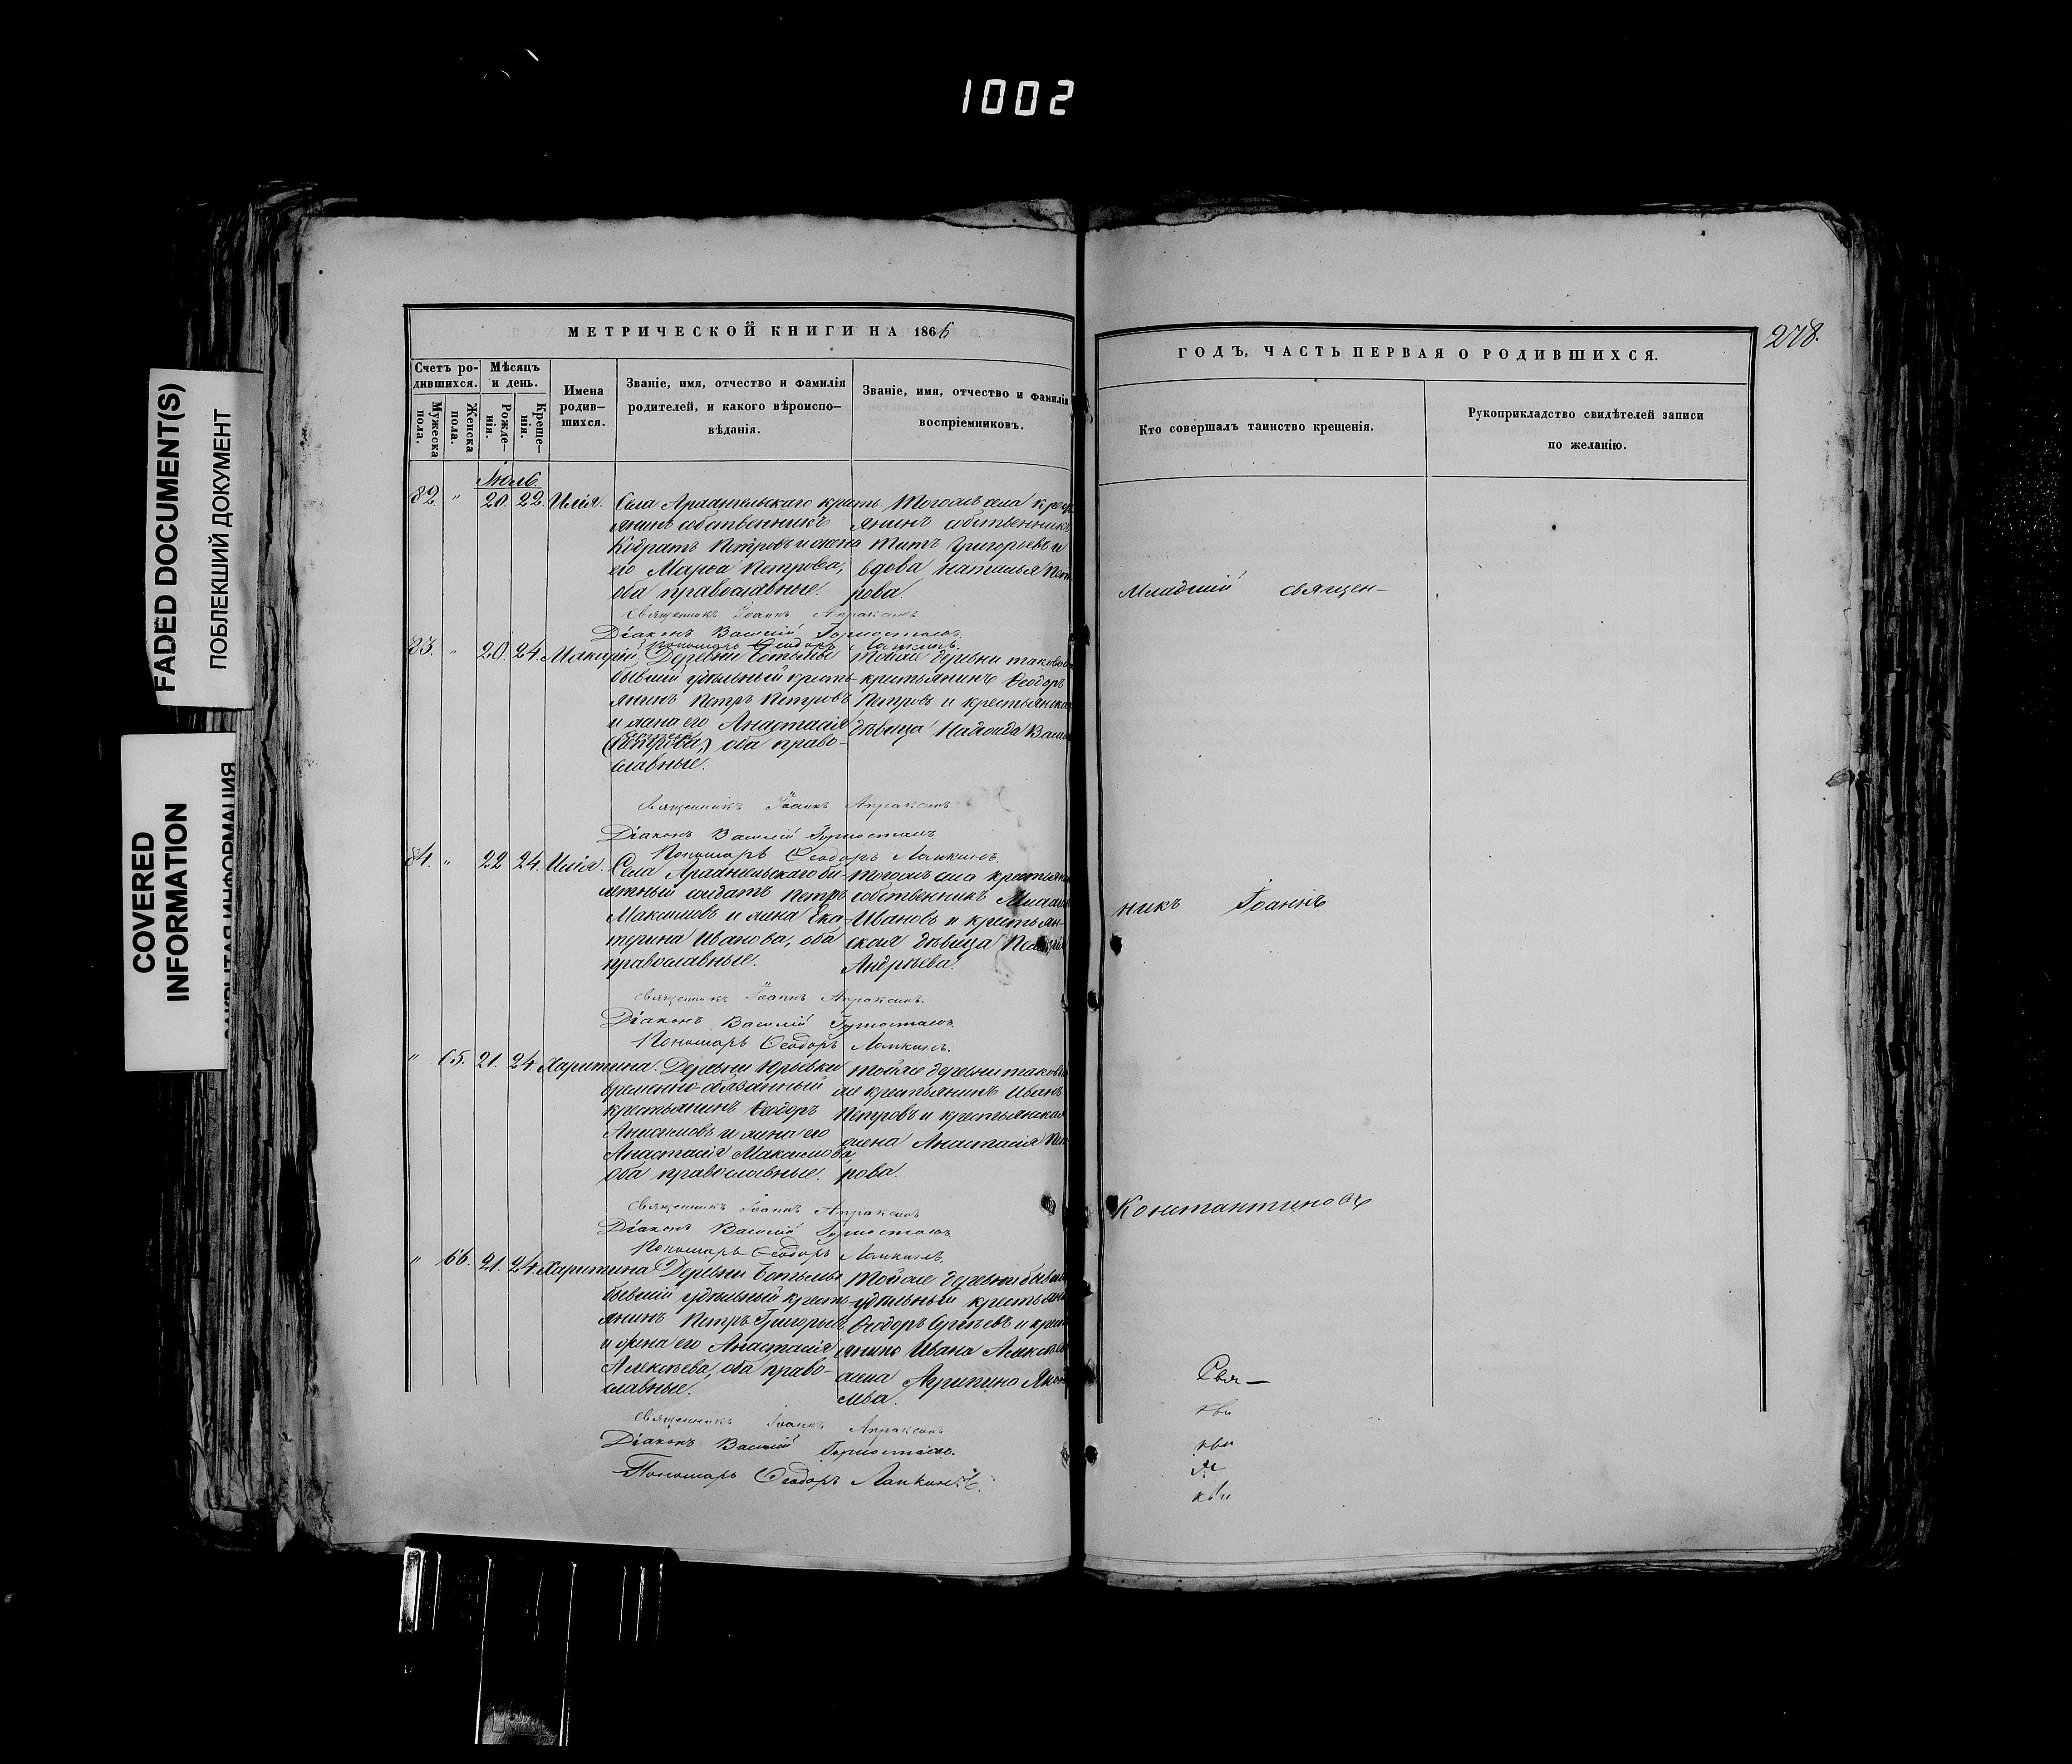 1002
FADED DOCUMENT(S)
ПОБЛЕКШИЙ ДОКУМЕНТ
COVERED
INFORMATION
МЕТРИЧЕСКОЙ КНИГИ НА 1866
Счетъ ро-
дившихся.
Мужеска
пола.
Женска
пола.
Мѣсяцъ
и день.
Рожде-
нія.
Креще-
нія.
Имена
родив-
шихся.
Званіе, имя, отчество и фамилія
родителей, и какого вѣроиспо-
вѣданія.
Званіе, имя, отчество и фамилія
воспріемниковъ.
Июль.
82. " 20. 22. Илія.
Села Архангельскаго кресть
янинъ собственникъ
Кодратъ Петровъ и жена
его Марѳа Петрова,
оба православные.
Тогожъ села крест
янинъ собственникъ
Титъ Григорьевъ и
вдова Наталья Пет
рова.
Священникъ Іоаннъ Апраксинъ
Діаконъ Василій
Пономарь Ѳеодоръ Лапкинъ.
83. " 20. 24. Макарій.
Деревни
бывшій удѣльный кресть-
янинъ Петръ Петровъ
и жена его Анастасія
оба право-
славные.
Тойже деревни таковой
крестьянинъ Ѳеодоръ
Петровъ и крестьянская
дѣвица Надежда
Священникъ Іоаннъ Апраксинъ
Діаконъ Василій
Пономарь Ѳеодоръ Лапкинъ.
84. " 22 24. Илія.
Села Архангельскаго би-
летный солдатъ Петръ
Максимовъ и жена Ека-
терина Иванова, оба
православные.
Тогожъ села крестьян
собственникъ
Ивановъ и крестьян-
ская дѣвица
Андрѣева.
Священникъ Іоаннъ Апраксинъ.
Діаконъ Василій
Пономарь Ѳеодоръ Лапкинъ.
" 65. 21. 24. Харитина.
Деревни Юрьевки
временно-обязанный
крестьянинъ Ѳеодоръ
Анисимовъ и жена его
Анастасія Максимова,
оба православные.
Тойже деревни таковой
же крестьянинъ Иванъ
Петровъ и крестьянская
жена Анастасія Пет
рова.
Священникъ Іоаннъ Апраксинъ
Діаконъ Василій
Пономарь Ѳеодоръ Лапкинъ.
" 66. 21. 24. Харитина.
Деревни
бывшій удѣльный кресть-
янинъ Петръ Григорьевъ
и жена его Анастасія
Алексѣева, оба право-
славные.
Тойже деревни бывшій
удѣльный крестьян
Ѳеодоръ Сергѣевъ и крест
янина Ивана Алексѣев
жена
Священникъ Іоаннъ Апраксинъ
Діаконъ Василій
Пономарь Ѳеодоръ Лапкинъ.
278.
ГОДЪ, ЧАСТЬ ПЕРВАЯ О РОДИВШИХСЯ.
Кто совершалъ таинство крещенія.
Рукоприкладство свидѣтелей записи
по желанію.
Младшій священ-
никъ Іоаннъ
Константиновъ